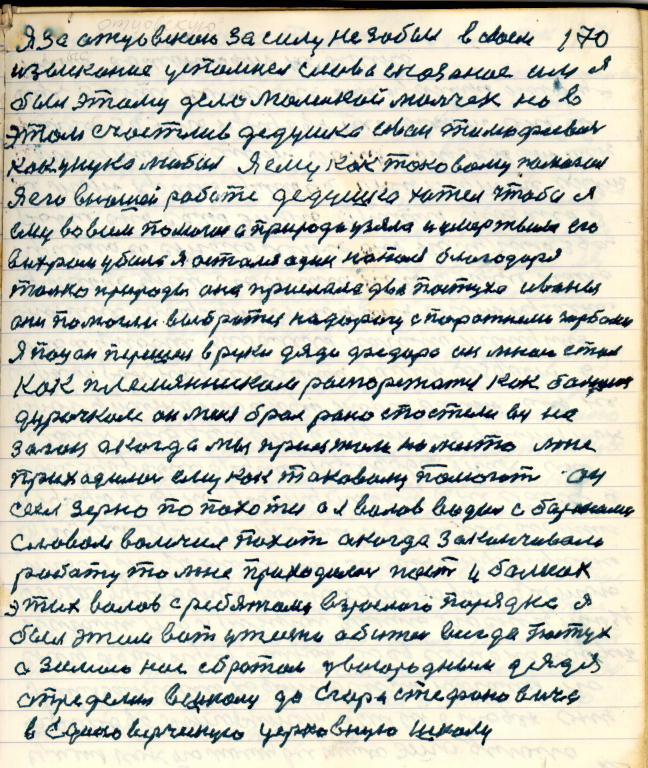 Я за отцовскою за силу не забыл в своем 170
изыскание успомнел слова сказаное им Я
был этому дела маленкой малчек но в
этом счастлив дедушка иван тимофеевич
как унука любил Я ему как таковому помогал
Я его внашей работе дедушка хател чтобы я
ему вовсем помогал а природа узяла и умертвила его
вихром убила Я осталя один потом благодоря
толко природы она прислала два пастуха иваны
они помогли выбратца надорогу с поратными горбами
Я попал перешел в руки дяди федора он мною стал
как племянником распорежатя как болшим
дурочком он меня брал рано спостели ву на
загон акогда мы приезжали на место мне
приходилос ему как таковому помогат он
сеял зерно по похоти а я валов водил с боронами
словом волочил пахот акогда заканчивали
работу то мне приходилос паст у балках
этих валов сребятами взрослого порядка я
был этим вот ужасно обижен всегда пастух
а зимою нас сбратом двоюродным дядя
определил ушколу до Егора стефановича
в Единоверческую церковную школу